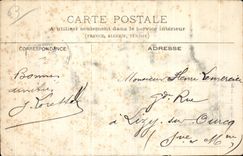 CARTE POSTALE
A utiliser seulement dans le Service intérieur
(FRANCE, ALGÉRIE, TUNISIE)
CORRESPONDANCE
ADRESSE
Bonne
année
Monsieur Henri Lemercier
Gde Rue
à Lizy sur Ourcq
(Sne et Mne)